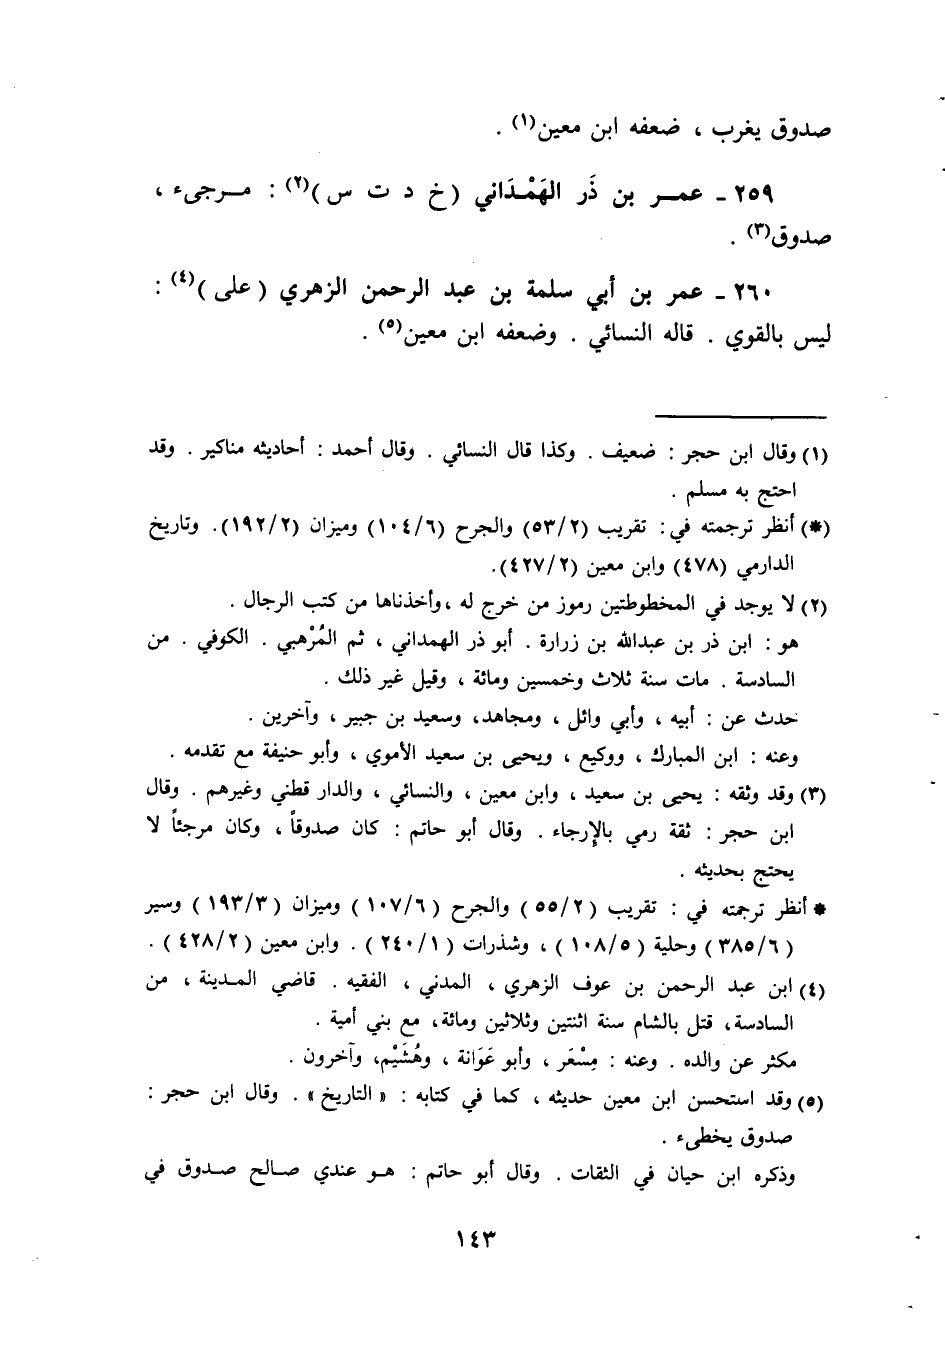 صدوق يغرب ، ضعفه ابن معين(١) .
٢٥٩ ـ عمـر بن ذَر الهَمْدَاني (خ د ت س)(٢) : مـرجىء ،
صدوق(٣) .
٢٦٠ ـ عمر بن أبي سلمة بن عبد الرحمن الزهري (على)(٤) :
ليس بالقوي . قاله النسائي . وضعفه ابن معين(٥) .
(١) وقال ابن حجر : ضعيف . وكذا قال النسائي . وقال أحمد : أحاديثه مناكير . وقد
احتج به مسلم .
(*) أنظر ترجمته في : تقريب (٥٣/٢) والجرح (١٠٤/٦) وميزان (١٩٢/٢). وتاريخ
الدارمي (٤٧٨) وابن معين (٤٢٧/٢).
(٢) لا يوجد في المخطوطتين رموز من خرج له ،وأخذناها من كتب الرجال .
هو : ابن ذر بن عبدالله بن زرارة . أبو ذر الهمداني ، ثم المُرْهبي . الكوفي . من
السادسة . مات سنة ثلاث وخمسين ومائة ، وقيل غير ذلك .
حدث عن : أبيه ، وأبي وائل ، ومجاهد، وسعيد بن جبير ، وآخرين .
وعنه : ابن المبارك ، ووكيع ، ويحيى بن سعيد الأموي ، وأبو حنيفة مع تقدمه .
(٣) وقد وثقه : يحيى بن سعيد ، وابن معين ، والنسائي ، والدار قطني وغيرهم . وقال
ابن حجر : ثقة رمي بالإرجاء . وقال أبو حاتم : كان صدوقاً ، وكان مرجئاً لا
يحتج بحديثه .
* أنظر ترجمته في : تقريب (٥٥/٢) والجرح (١٠٧/٦) وميزان (١٩٣/٣) وسير
(٣٨٥/٦) وحلية (١٠٨/٥) ، وشذرات (٢٤٠/١) . وابن معين (٤٢٨/٢) .
(٤) ابن عبد الرحمن بن عوف الزهري ، المدني ، الفقيه . قاضي المـدينة ، من
السادسة، قتل بالشام سنة اثنتين وثلاثين ومائة، مع بني أمية .
مكثر عن والده . وعنه : مِسْعَر ، وأبو عَوَانة ، وهُشَيْم، وآخرون .
(٥) وقد استحسن ابن معين حديثه ، كما في كتابه : « التاريخ » . وقال ابن حجر :
صدوق يخطىء .
وذكره ابن حبان في الثقات . وقال أبو حاتم : هـو عندي صـالح صـدوق في
١٤٣